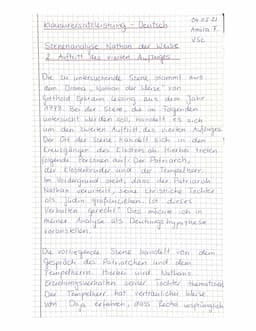 Klausurersatzleistung - Deutsch
04.05.21
Amira F.
Szenenanalyse Nathan der Weise
2. Auftritt des vierten Aufzuges
Die zu untersuchende Szene stammt aus
dem Drama „Nathan der Weise" von
Gotthold Ephraim Lessing aus dem Jahr
1779. Bei der Szene, die im Folgenden
untersucht werden soll, handelt es sich
um den zweiten Auftritt des vierten Aufzuges.
Der Ort der Szene handelt sich in den
Kreuzgängen des Klosters ab. Hierbei treten
folgende Personen auf: Der Patriarch,
der Klosterbruder und der Tempelherr.
Im Vordergrund steht, dass der Patriarch
Nathan verurteilt, seine christliche Tochter
als Jüdin großzuziehen. Ist dieses
Verhalten gerecht? Dies möchte ich in
meiner Analyse als Deutungshypothese
voranstellen.
Die vorliegende Szene handelt von dem
Gespräch des Patriarchen und dem
Tempelherrn. Hierbei wird Nathans
Erziehungsverhalten seiner Tochter thematisiert.
Der Tempelherr hat vertraulicher Weise
von Daja erfahren, dass Recha ursprünglich